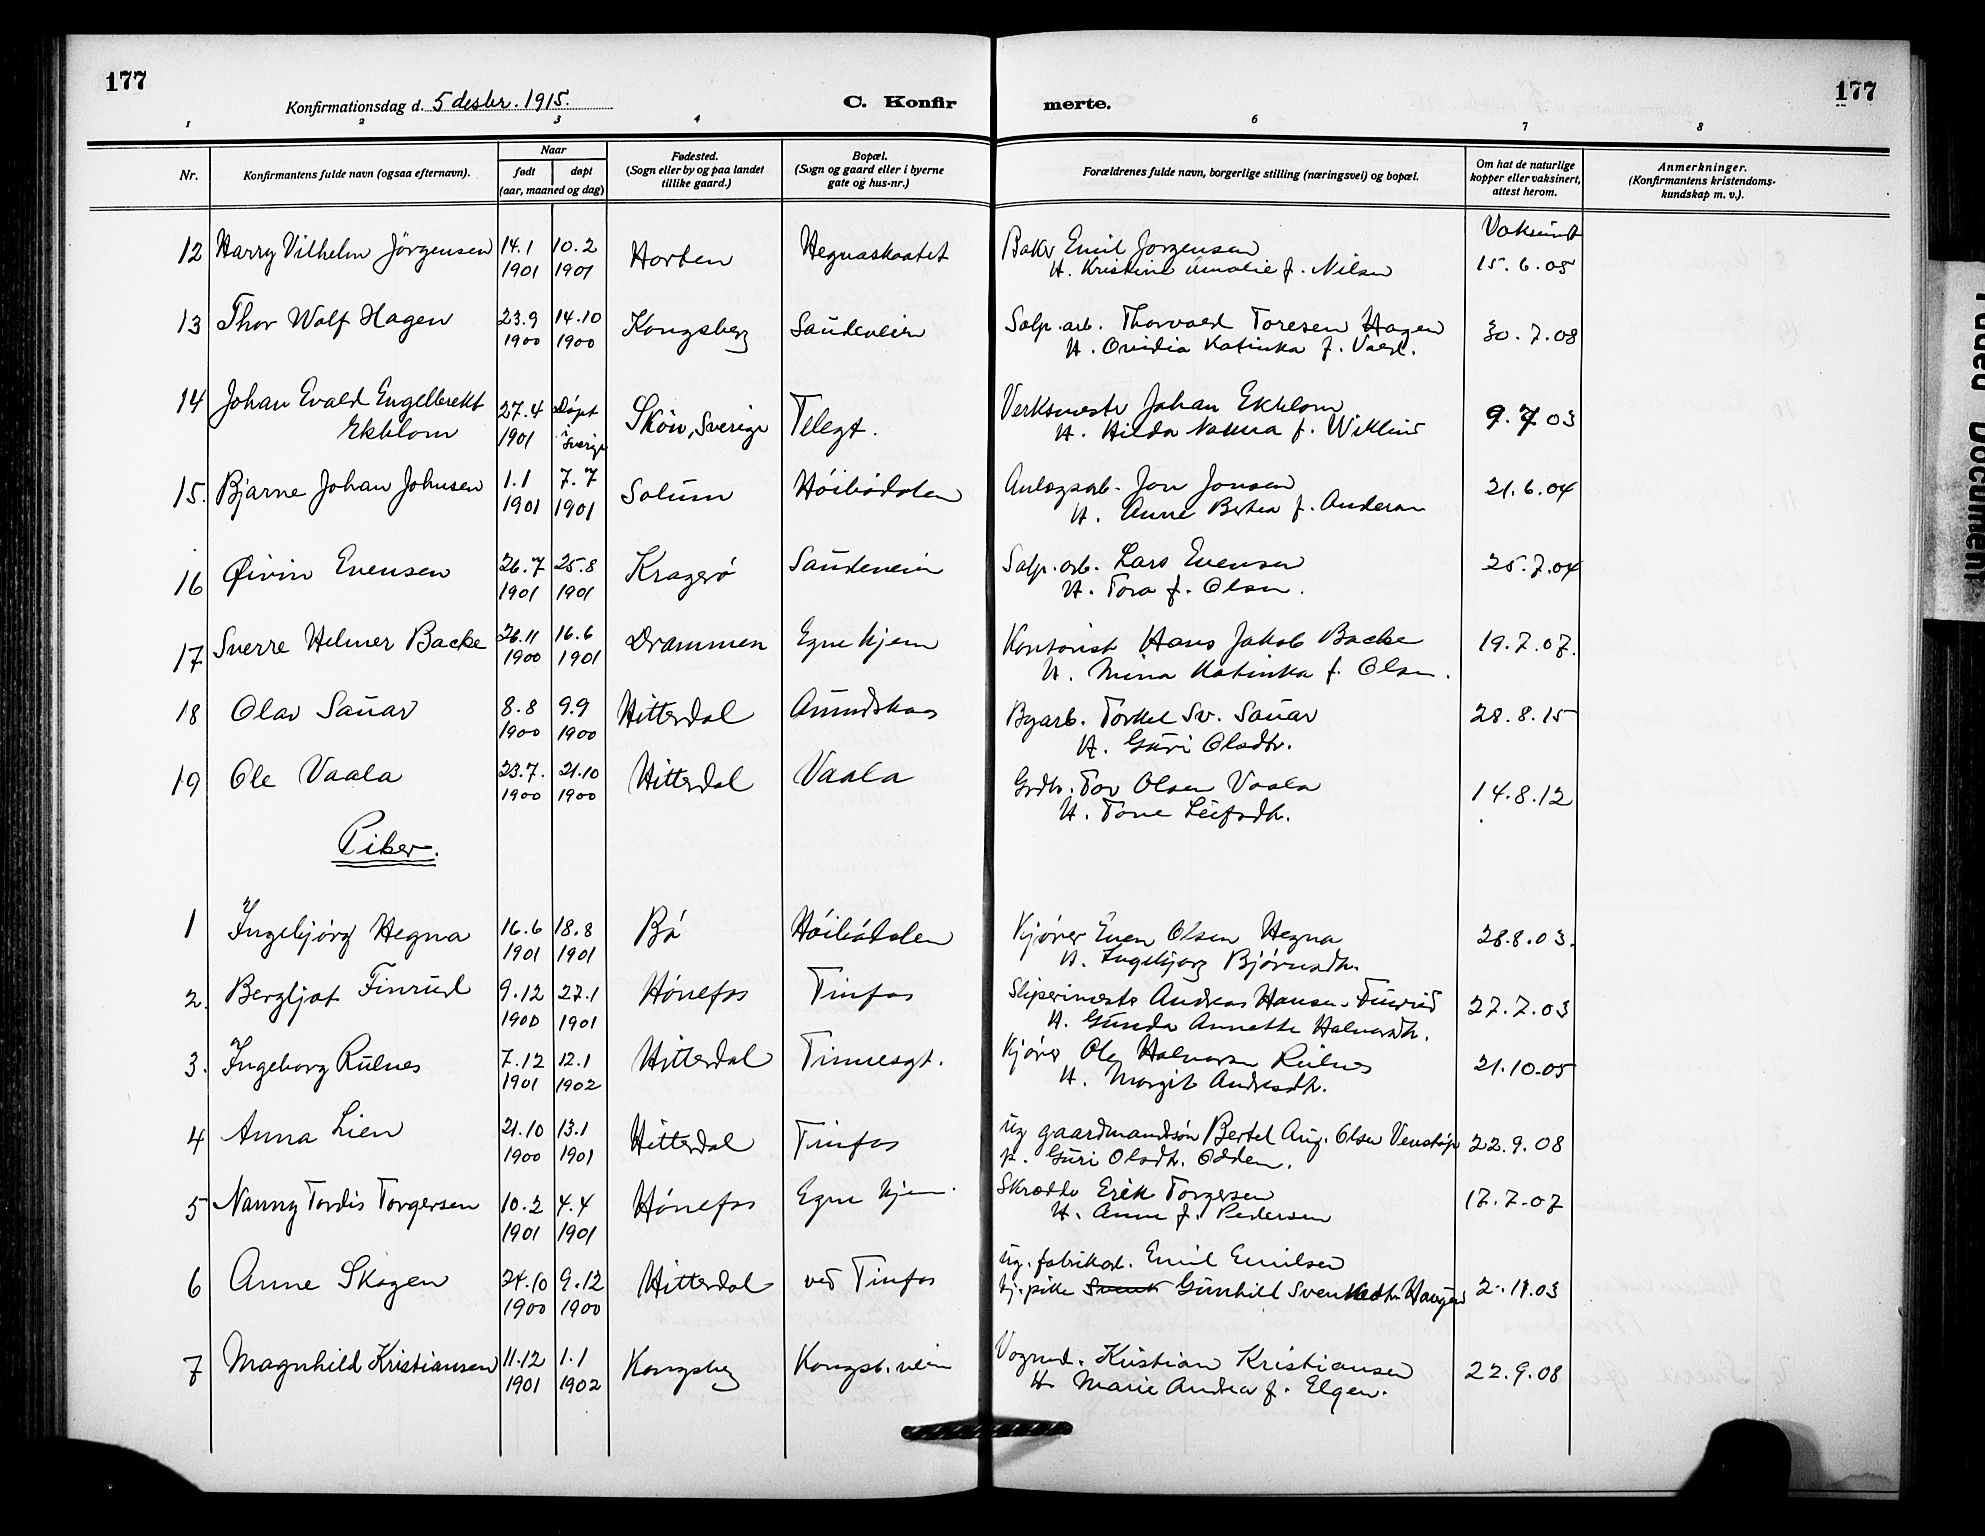 177
Konfirmationsdag d. 5 desbr. 1915.
C. Konfir merte.
177
1 2 3 4 5 6 7 8
Nr.
Konfirmantens fulde navn (ogsaa efternavn).
Naar
født
døpt
(aar, maaned og dag)
Fødested.
(Sogn eller by og paa landet
tillike gaard.)
Bopæl.
(Sogn og gaard eller i byerne
gate og hus-nr.)
Forældrenes fulde navn, borgerlige stilling (næringsvei) og bopæl.
Om hat de naturlige
kopper eller vaksinert,
attest herom.
Anmerkninger.
(Konfirmantens kristendoms-
kundskap m. v.).
12 Harry Vilhelm Jörgensen 14.1 10.2 Horten Hegnaskaatet Baker Emil Jorgensen Vaksinert
1901 1901 H. Kristine Amalie f. Nilsen 15.6.05
13 Thor Wolf Hagen 23.9 14.10 Kongsberg Saudeveien Salp. arb. Thorvald Toresen Hagen 30.7.08
1900 1900 H. Ovidia Katinka f. Vael.
14 Johan Evald Engelbrekt 27.4 Døpt Skön, Sverige Telegt. Verksmestr Johan Ekblom 9.7 03
Ekblom 1901 i Sverige H. Hilda Namna f. Wiklund
15. Bjarne Johan Johnsen 1.1 7.7 Solum Höibödalen Anlægsarb. Jon Jonsen 21.6.04
1901 1901 H. Anne Bertea f. Andersen
16 Øivin Evensen 26.7 25.8 Kragerö Saudeveien Salp. arb. Lars Evensen 25.7.04
1901 1901 H. Tora f. Olsen.
17 Sverre Helmer Backe 26.11 16.6 Drammen Egne hjem Kontorist Hans Jakob Backe 19.7.07.
1900 1901 H. Mina Katinka f. Olsen.
18 Olav Sauar 8.8 9.9 Hitterdal Amundskaas Byarb. Torkel Sv. Sauar 28.8.15
1900 1900 H. Guri Olsdtr.
19 Ole Vaala 23.7. 21.10 Hitterdal Vaala Grdbr. Tov Olsen Vaala 14.8.12
1900 1900 H. Tone Leifsdtr.
Piker.
1 Ingebjörg Hegna 16.6 18.8 Bö Höibödalen Kjörer Even Olsen Hegna 28.8.03.
1901 1901 H. Ingebjorg Bjørnsdtr.
2. Bergljot Finrud 9.12 27.1 Hönefos Tinfos Sliperimestr Andreas Hansen Finrud 27.7.03
1900 1901 H. Gunda Annette Halvorsdtr.
3. Ingeborg Rulnes 7.12 12.1 Hitterdal Tinnesgt. Kjörer Ole Halvorsen Rulnes 21.10.05
1901 1902 H. Margit Andresdtr.
4 Anna Lien 21.10 13.1 Hitterdal Tinfos ug gaardmandsön Bertel Aug. Olsen Venstöp 22.9.08
1900 1901 p. Guri Olsdtr. Odden.
5 Nanny Tordis Torgersen 10.2 4.4 Hönefos Egne hjem. Skrædder Erik Torgersen 17.7.07
1901 1901 H. Anne f. Pedersen
6 Anne Skogen 24.10 9.12 Hitterdal ved Tinfos ug. fabrikarb. Emil Emilsen
1900 1900 tj. pike Gunhild Svenkesdtr Haugen 2.11.03
7 Magnhild Kristiansen 11.12 1.1 Kongsberg Kongsb. veien Vognmd. Kristian Kristiansen 22.9.08
1901 1902 H. Marie Andrea f. Elgen.
Faded Document